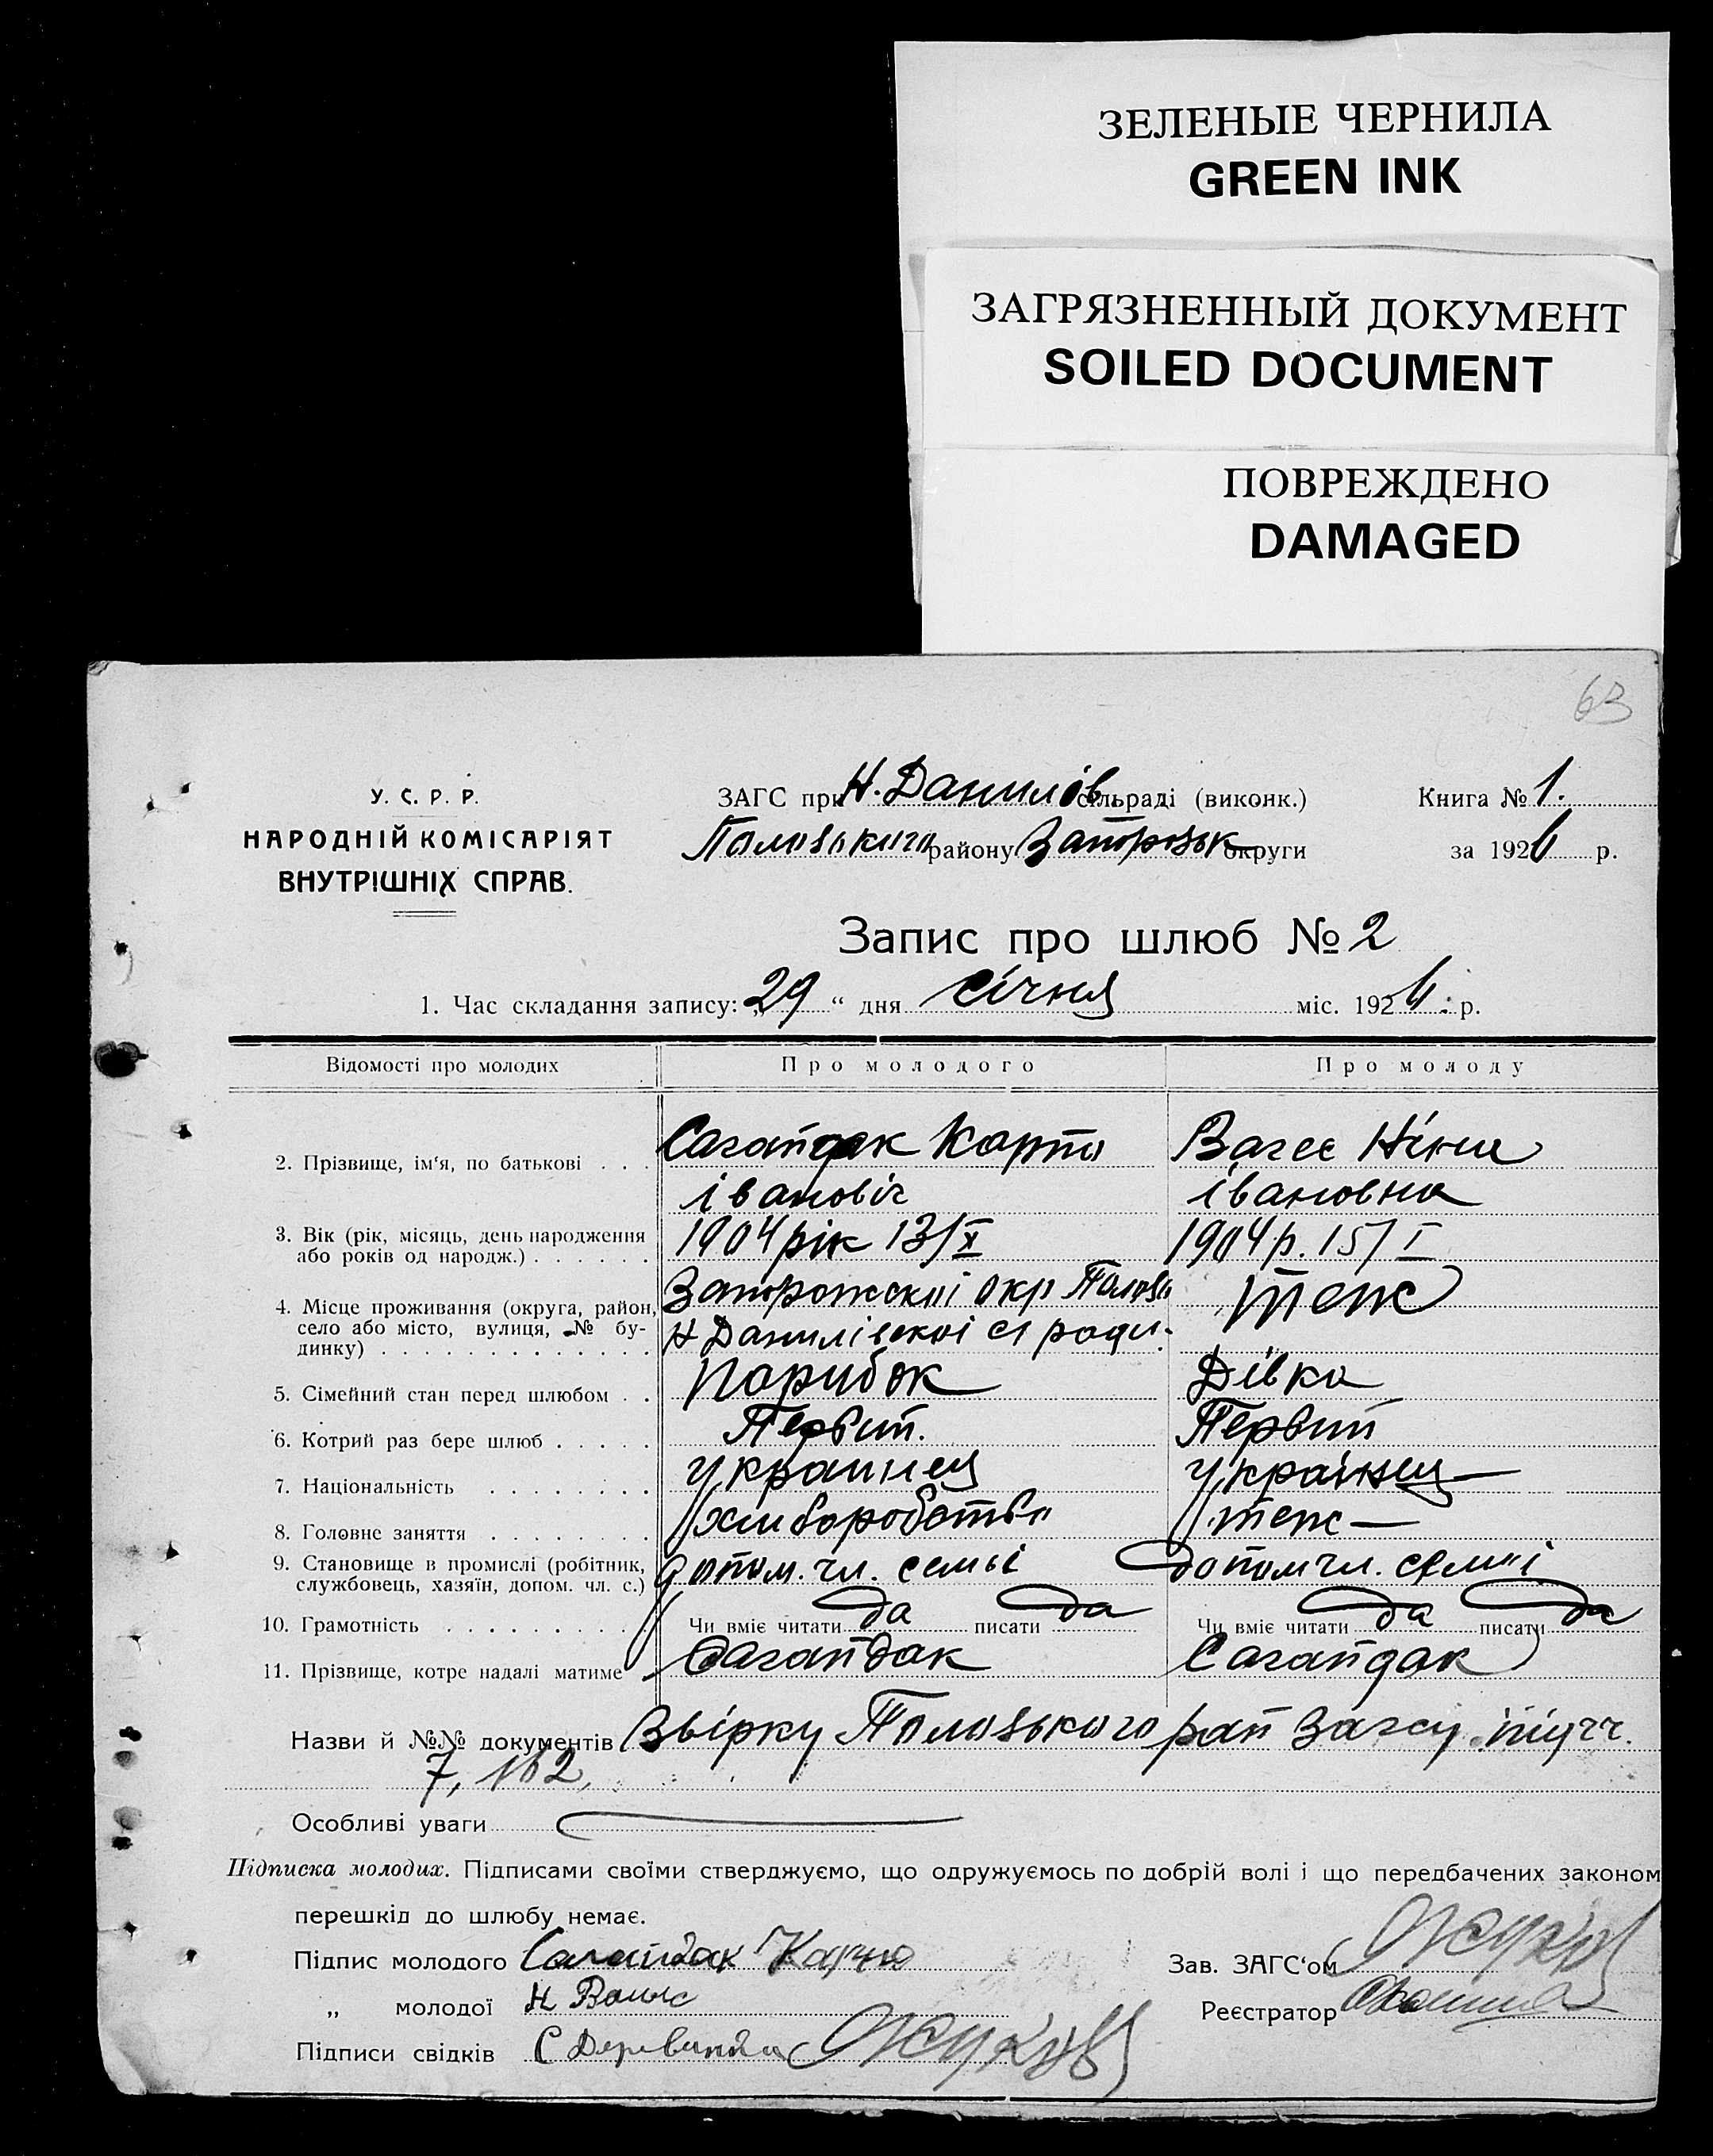 ЗЕЛЕНЫЕ ЧЕРНИЛА
GREEN INK
ЗАГРЯЗНЕННЫЙ ДОКУМЕНТ
SOILED DOCUMENT
ПОВРЕЖДЕНО
DAMAGED
63
У. С. Р. Р.
НАРОДНІЙ КОМІСАРІЯТ
ВНУТРІШНІХ СПРАВ.
ЗАГС при Н. Данилів. сільраді (виконк.)
Пологського району Запорозьк округи
Книга № 1.
за 1926 р.
Запис про шлюб № 2
1. Час складання запису: „29“ дня січня міс. 1926 р.
Відомості про молодих Про молодого Про молоду
2. Прізвище, ім‘я, по батькові . . . Сагайдак Карпо Ніна
івановіч івановна
3. Вік (рік, місяць, день народження 1904 рік 13/X 1904 р. 15/I
або років од народж.) . . . . . .
4. Місце проживання (округа, район, Запорожскої окр Пологв теж
село або місто, вулиця, № бу- Н Данилівскої с ради.
динку) . . . . . . . . . . . . .
5. Сімейний стан перед шлюбом . . Парубок Дівка
6. Котрий раз бере шлюб . . . . . Первий. Первий
7. Національність . . . . . . . . українец українец
8. Головне заняття . . . . . . . . хлиборобство теж
9. Становище в промислі (робітник, допом. чл. семьі допом чл. семьї
службовець, хазяїн, допом. чл. с.)
10. Грамотність . . . . . . . . . . Чи вміє читати да писати да Чи вміє читати да писати да
11. Прізвище, котре надалі матиме Сагайдак Сагайдак
Назви й №№ документів Звірку Пологського рай Загсу
7, 162,
Особливі уваги
Підписка молодих. Підписами своїми стверджуємо, що одружуємось по добрій волі і що передбачених законом
перешкід до шлюбу немає.
Підпис молодого Сагайдак Карпо
„ молодої Н
Підписи свідків С Жуков
Зав. ЗАГС‘ом Жуков
Реєстратор